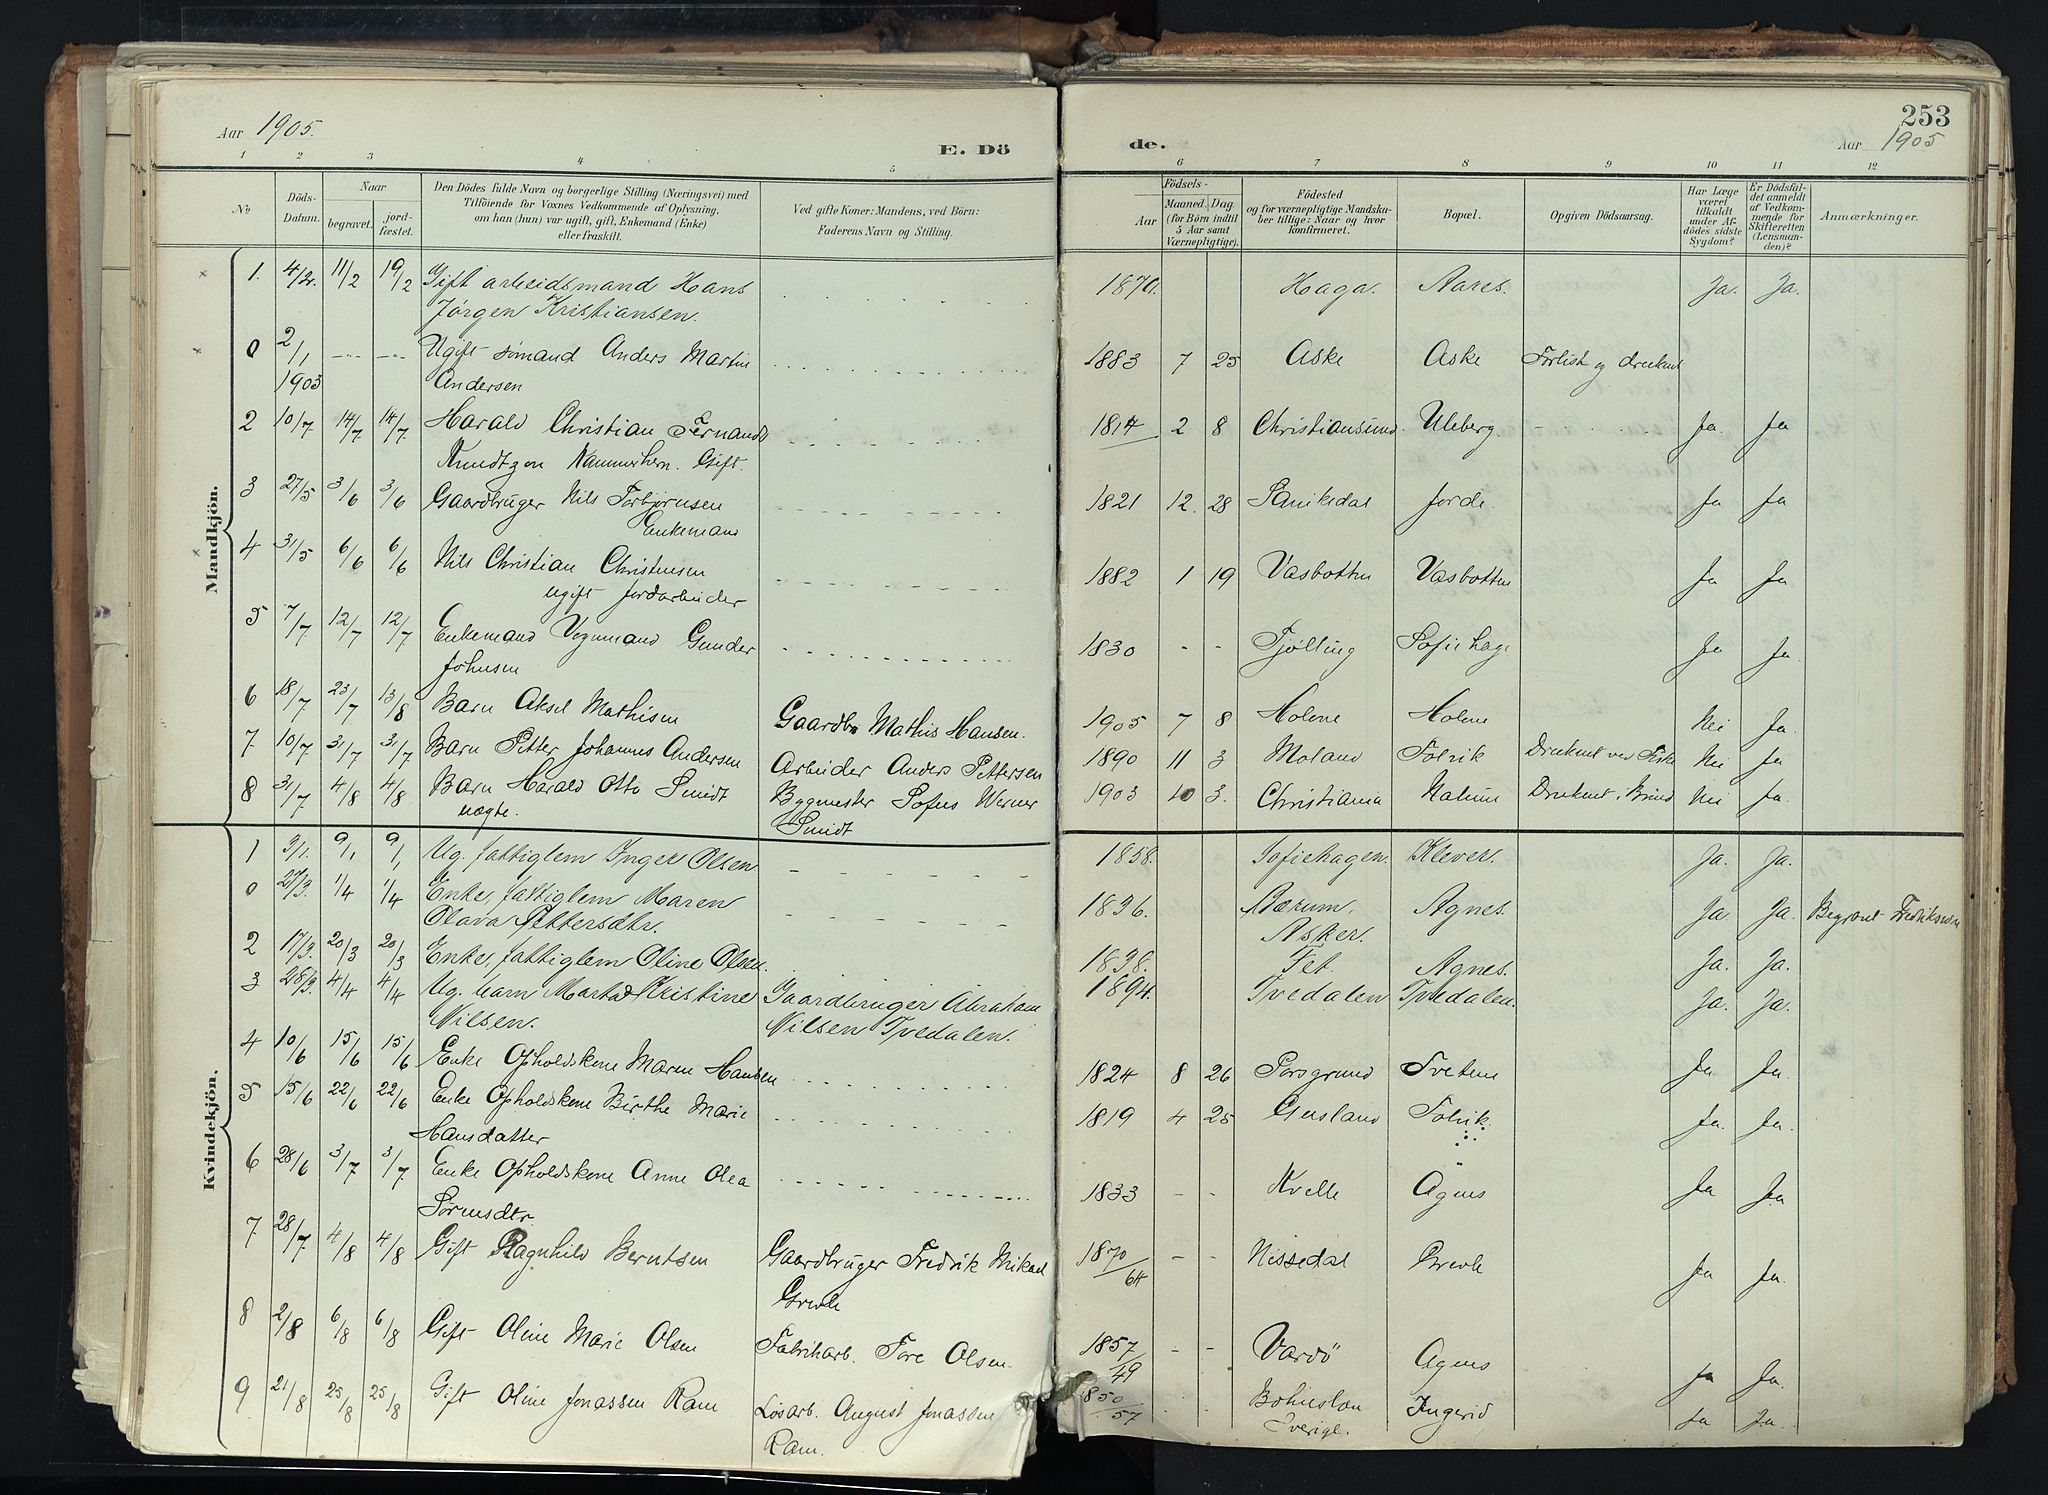 Aar 1905.
E. Dö
1 2 3 4 5
No
Döds-Datum.
Naar
begravet.
jord-fæstet.
Den Dödes fulde Navn og borgerlige Stilling (Næringsvei) med
Tilföiende for Voxnes Vedkommende af Oplysning,
om han (hun) var ugift, gift, Enkemand (Enke)
eller fraskilt.
Ved gifte Koner: Mandens, ved Börn:
Faderens Navn og Stilling.
Mandkjön.
1. 4/2. 11/2 19/2 Gift arbeidsmand Hans
Jørgen Kristiansen.
0 2/1 1903 Ugift sømand Anders Martin
Andersen
2 10/7 14/7 14/7 Harald Christian Fernando
Knudtzon Kammerherr. Gift.
3 27/5 3/6 3/6 Gaardbruger Nils Torbjørnsen
Enkemand
4 31/5 6/6 6/6 Nils Christian Christensen
ugift jordarbeider
5 7/7 12/7 12/7 Enkemand Vognmand Gunder
Johnsen
6 18/7 23/7 13/8 Barn Aksel Mathisen Gaardbr Mathis Hansen.
7 10/7 31/7 31/7 Barn Petter Johannes Andersen Arbeider Anders Pettersen
8 31/7 4/8 4/8 Barn Harald Otto Smidt Bygmester Sofus Werner
uægte. Smidt
Kvindekjön.
1 3/1. 9/1 9/1 Ug. fattiglem Inger Olsen
0 27/3. 1/4 1/4 Enke, fattiglem Maren
Olava Pettersdtr.
2 17/3. 20/3 20/3 Enke, fattiglem Oline Olsen.
3 28/3. 4/4 4/4 Ug. barn Marta Kristine Gaardbruger Abraham
Nilsen. Nilsen Tvedalen.
4 10/6 15/6 15/6 Enke Opholdskone Maren Hansen
5 15/6 22/6 22/6 Enke Opholdskone Birthe Marie
Hansdatter
6 28/6 3/7 3/7 Enke Opholdskone Anne Olea
Sørensdtr.
7 28/7 4/8 4/8 Gift Ragnhild Berntsen Gaardbruger Fredrik Mikael
8 2/8 6/8 6/8 Gift Oline Marie Olsen Fabrikarb. Tore Olsen
9 21/8 25/8 25/8 Gift Oline Jonassen Ram Løsarb. August Jonassen
Ram.
253
de.
Aar 1905
6 7 8 9 10 11 12
Födsels-
Aar
Maaned. Dag
(for Börn indtil
5 Aar samt
Værnepligtige).
Födested
og for værnepligtige Mandska-
ber tillige: Naar og hvor
konfirmeret.
Bopæl.
Opgiven Dödsaarsag.
Har Læge
været
tilkaldt
under Af-
dödes sidste
Sygdom?
Er Dödsfal-
det anmeldt
af Vedkom-
mende for
Skifteretten
(Lensman-
den)?
Anmærkninger.
1870. Haga. Aares. Ja. Ja.
1883 7 25 Aske Aske Forlist og druknet
1814 2 8 Christiansund Uleberg. Ja. Ja
1821 12. 28 Jorde. Ja Ja
1882 1 19 Vasbotten Vasbotten Ja Ja
1830 - - Tjølling Sofiehage Ja Ja.
1905 7 8 Holene Holene Nei Ja.
1890 11 3 Moland Tolvik Druknet ved Fiske Nei Ja
1903 10 3. Christiania Nalum Druknet i Brønd Nei Ja.
1858. Sofiehagen. Klever. Ja. Ja.
1836. Bærum. Agnes. Ja. Ja. Begravet Fredriksværn
Asker.
1838. Fet. Agnes. Ja. Ja.
1894. Tvedalen Tvedalen. Ja. Ja.
1824 8 26 Porsgrund Tvetene Ja Ja.
1819 4 25 Gusland Tolvik. Ja. Ja.
1833 - - Kvelle Agnes Ja Ja.
1870/64 - - Nissedal Ja Ja.
1857/49 - - Vardö Agnes Ja Ja.
1850/57 - - Bohuslen Ingerid Ja Ja.
Sverige.